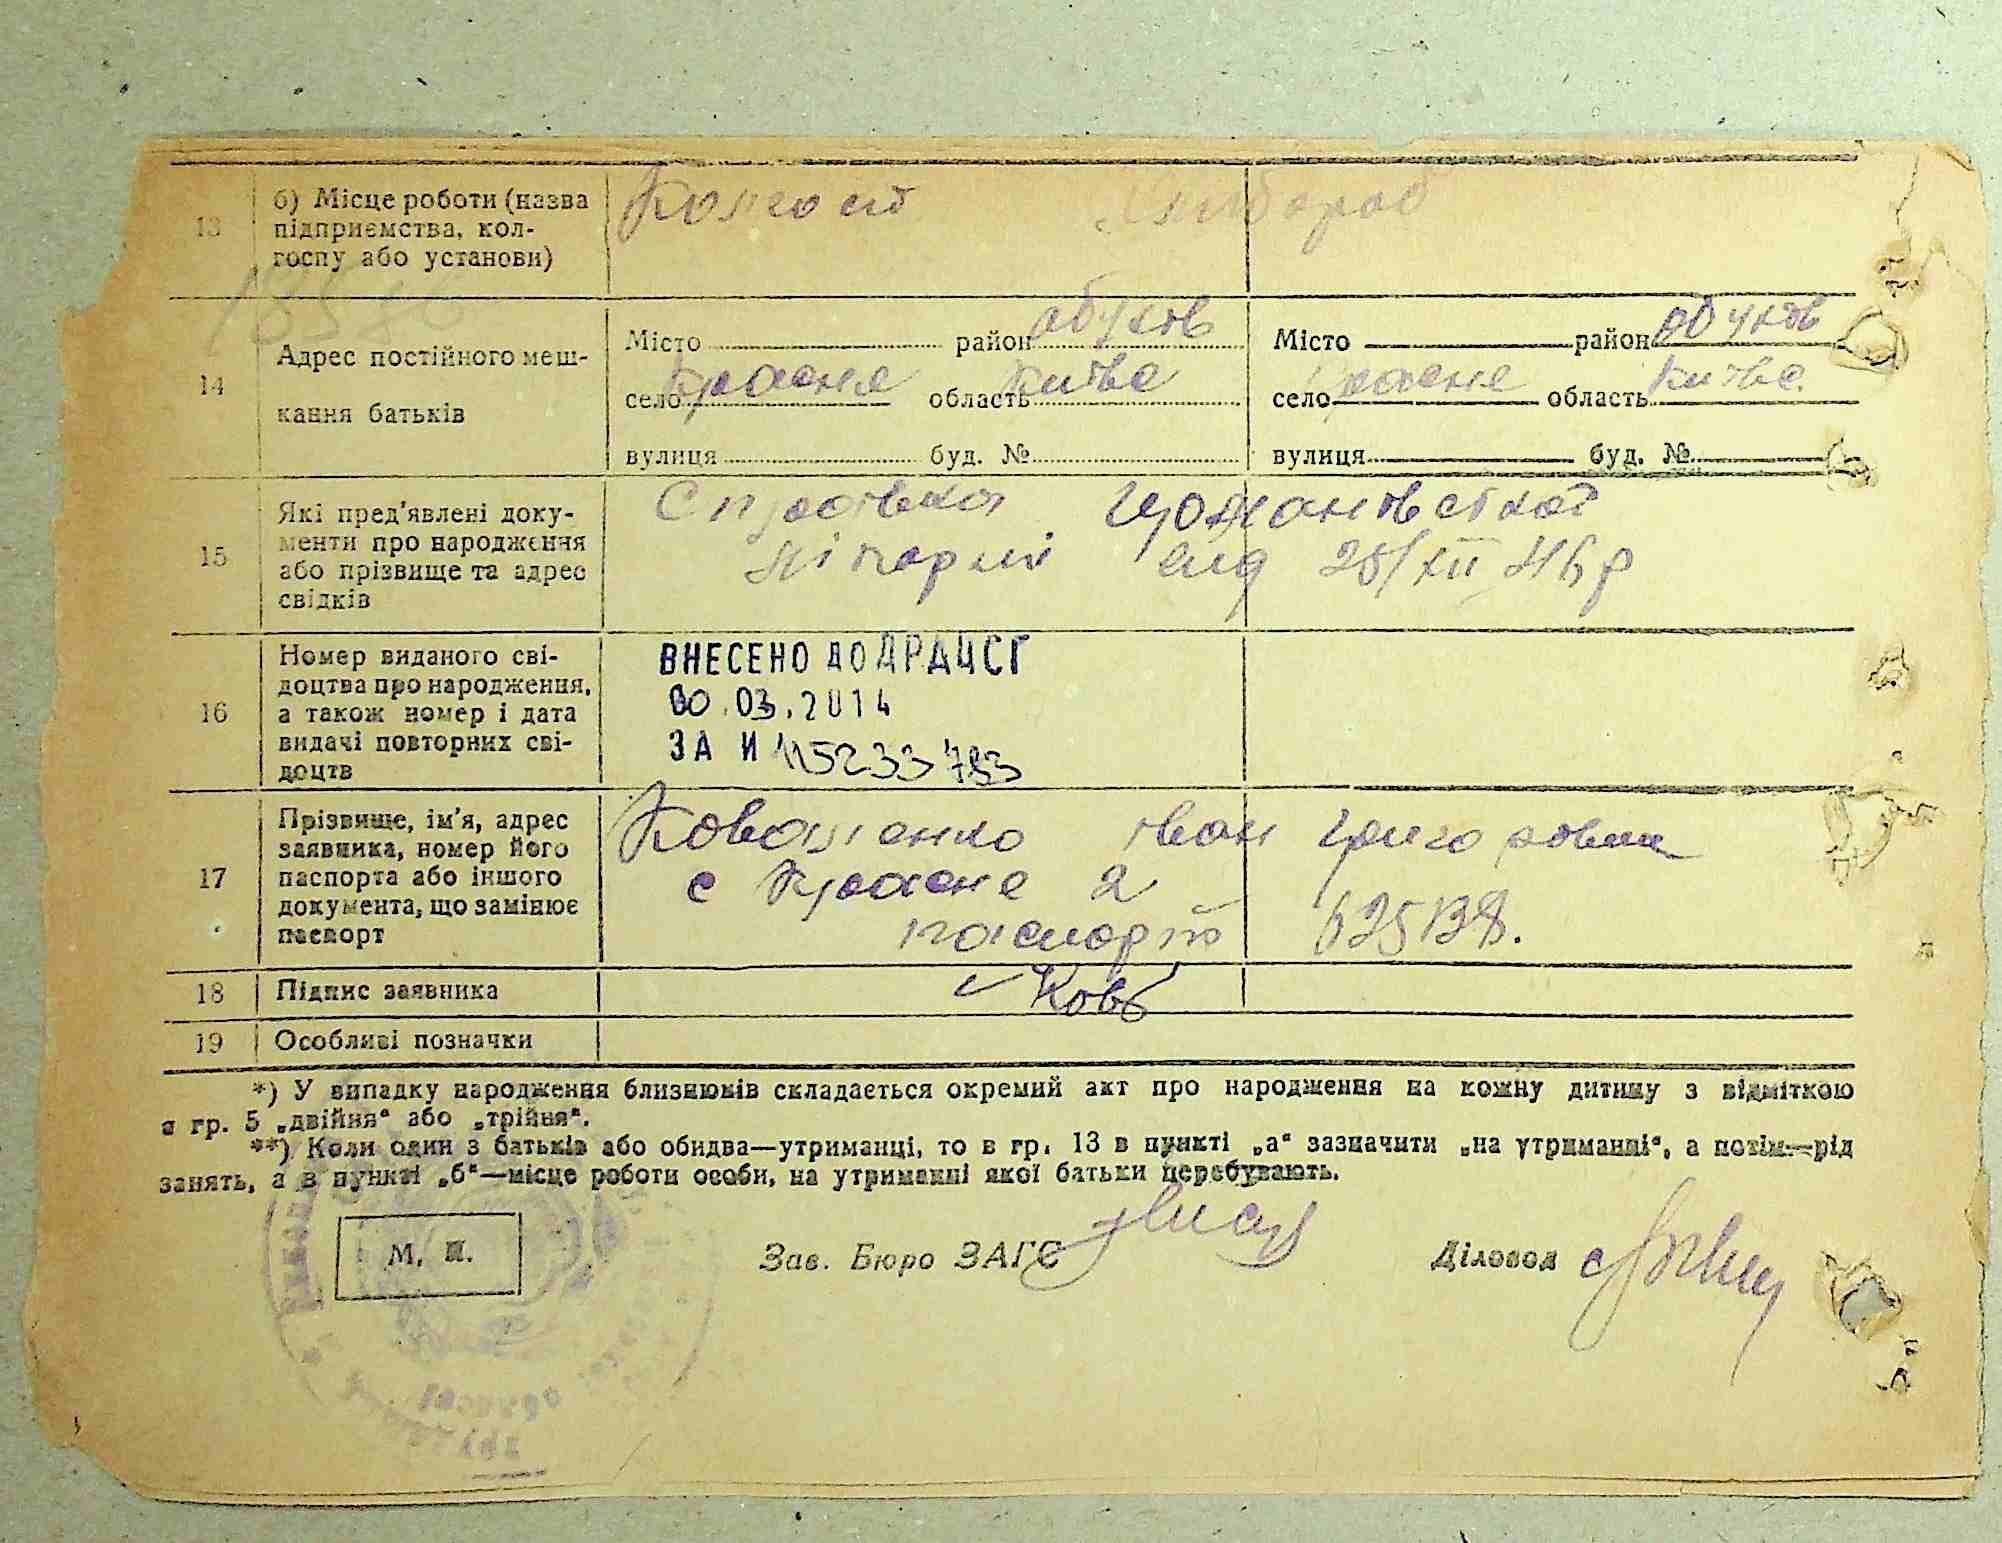 13 б) Місце роботи (назва
підприємства, кол-
госпу або установи)
Колгосп Хлібороб
14 Адрес постійного меш-
кання батьків
Місто район Обухов
село Красне область Київс
вулиця буд. №
Місто район Обухов
село Красне область Київс
вулиця буд. №
15 Які пред'явлені доку-
менти про народження
або прізвище та адрес
свідків
Справка
від 25/XII 46 р
16 Номер виданого сві-
доцтва про народження,
а також номер і дата
видачі повторних сві-
доцтв
ВНЕСЕНО ДО ДРАЦСГ
00.03.2014
ЗА И 115233793
17 Прізвище, ім'я, адрес
заявника, номер його
паспорта або іншого
документа, що замінює
паспорт
Коваленко Іван Григорович
с Красне 2
паспорт 625138.
18 Підпис заявника
Ков
19 Особливі позначки
*) У випадку народження близнюків складається окремий акт про народження на кожну дитину з відміткою
в гр. 5 „двійня“ або „трійня“.
**) Коли один з батьків або обидва—утриманці, то в гр. 13 в пункті „а“ зазначити „на утриманні“, а потім—рід
занять, а в пункті „б“—місце роботи особи, на утриманні якої батьки перебувають.
М. П.
Зав. Бюро ЗАГС
Діловод